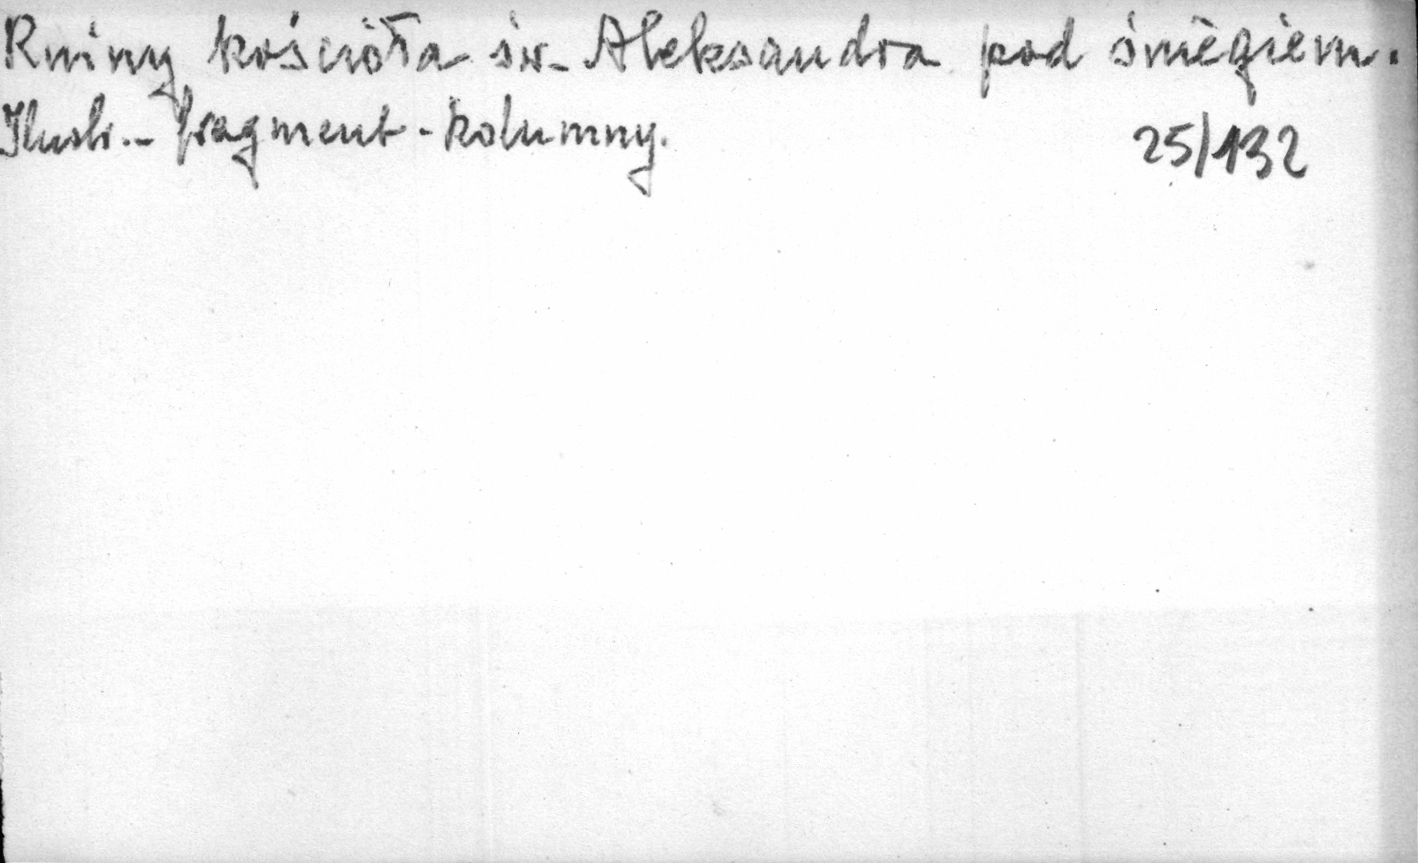 Ruiny kościoła św. Aleksandra pod śniegiem.
fragment - kolumny. 25/132